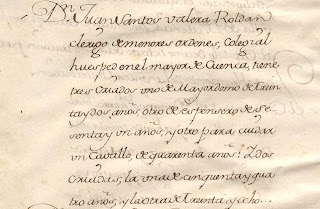 Dn. Juan Santos Valera, Roldan
clerigo de menores ordenes, Colegial
huesped en el mayor de Cuenca, tiene
tres Criados uno de Mayordomo de trein
taydos, anos, otro de espensero de se
senta y un años, y otro para cuidar
un Cavallo, de quarenta años: Y dos
Criadas, la una de cinquenta y qua
tro años, y la otra de Treinta y ocho...